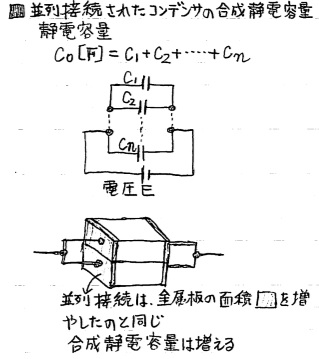 並列接続されたコンデンサの合成静電容量
静電容量
C₀[F]=C₁+C₂+……+Cₙ
C₁
C₂
Cₙ
電圧E
並列接続は、金属板の面積□を増
やしたのと同じ
合成静電容量は増える